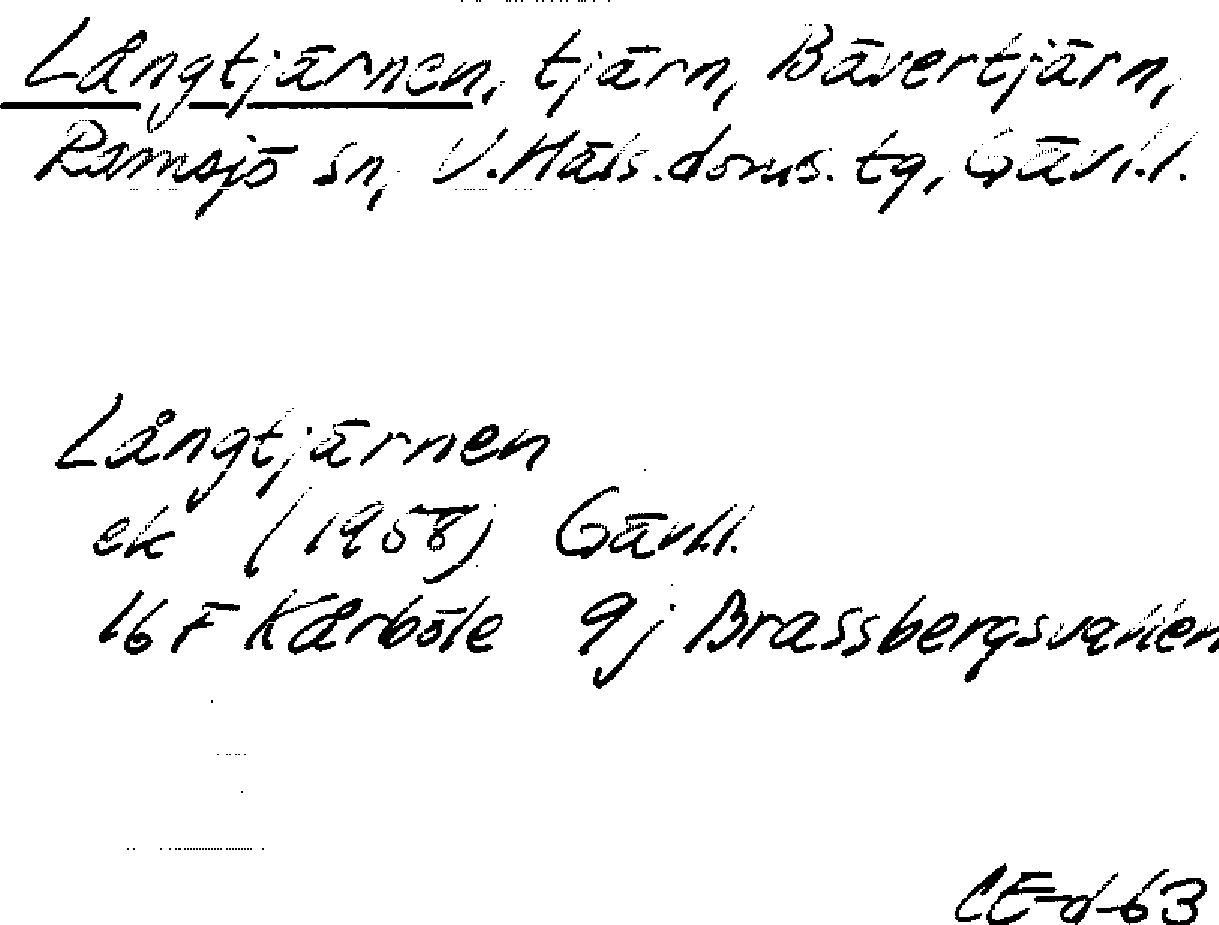 Långtjärnen, tjärn, Bävertjärn,
Ramsjö sn, V. Häls. doms. tg, Gävl.l.
Långtjärnen
ek (1958) Gävl.l.
16 F Kårböle 9j Brassbergsvallen
CE-d-63